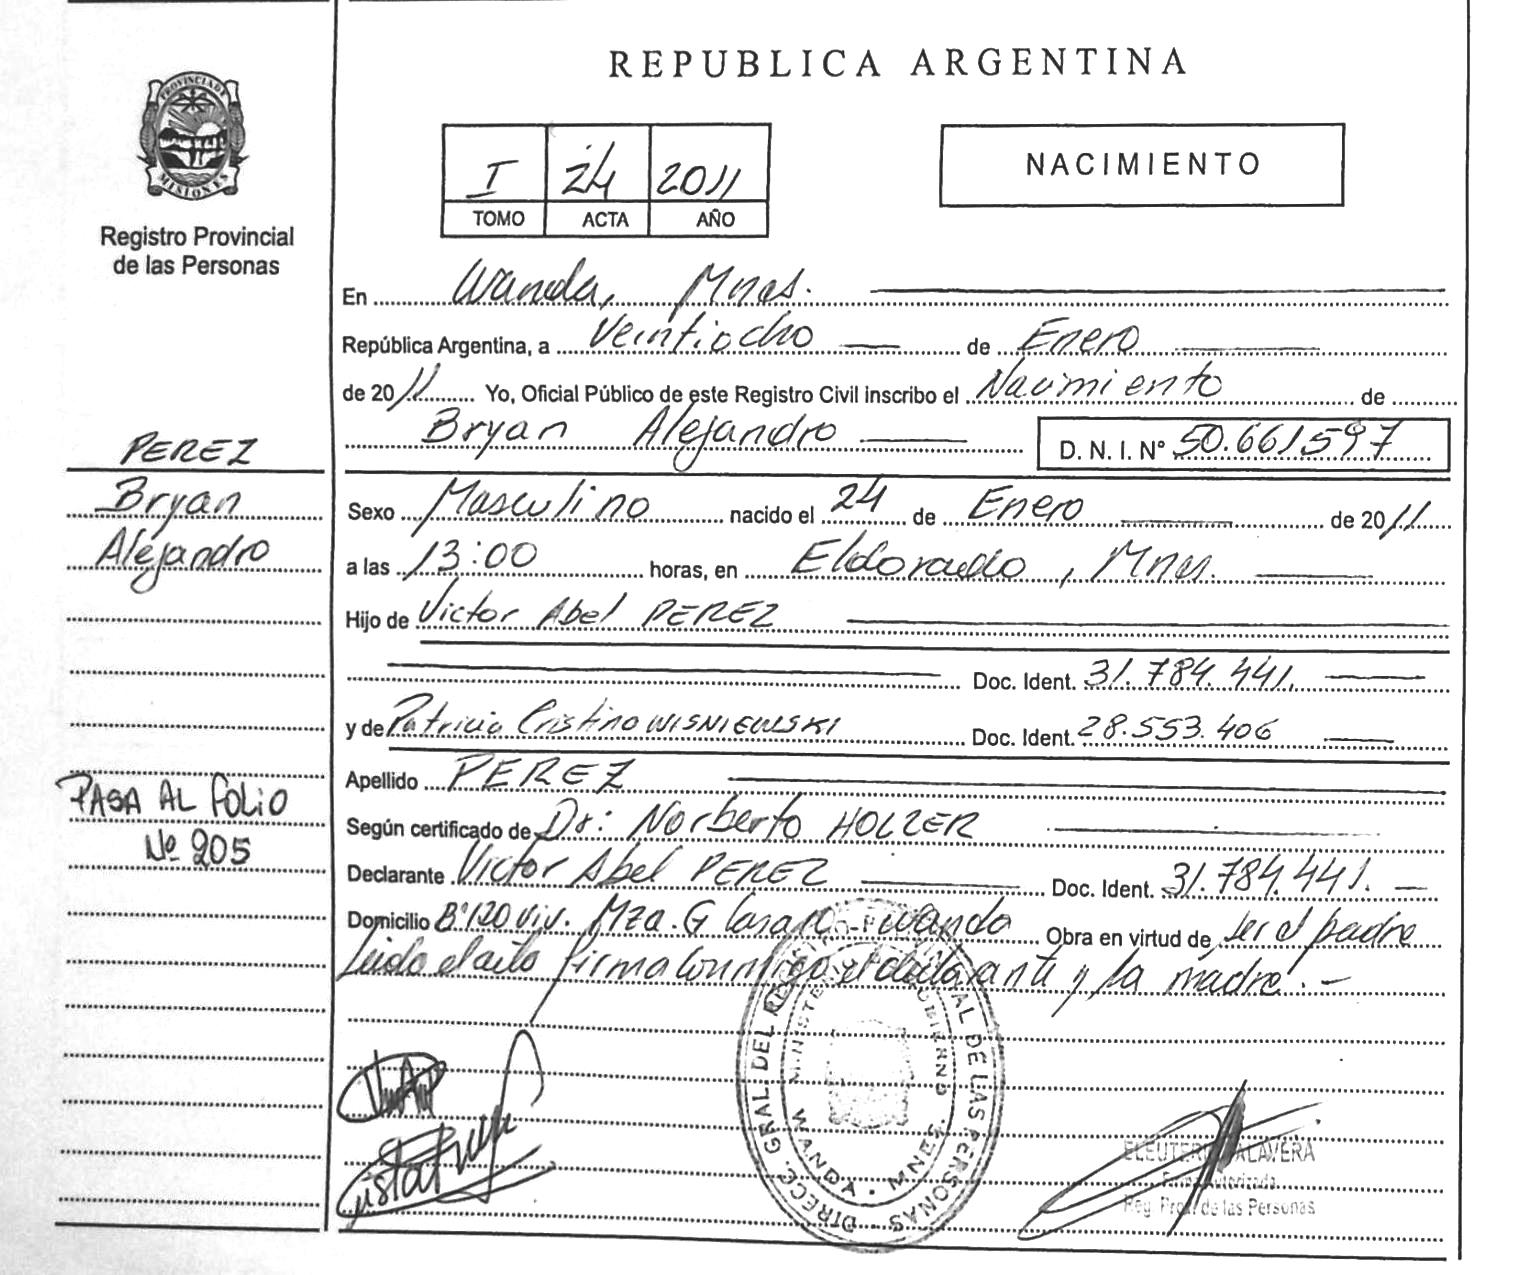 PROVINCIA DE
MISIONES
Registro Provincial
de las Personas
PEREZ
Bryan
Alejandro
PASA AL FOLIO
Nº 205
REPUBLICA ARGENTINA
I 24 2011
TOMO ACTA AÑO
NACIMIENTO
En Wanda, Mnes.
República Argentina, a Veintiocho de Enero
de 2011 Yo, Oficial Público de este Registro Civil inscribo el Nacimiento de
Bryan Alejandro D. N. I. Nº 50.661597
Sexo Masculino nacido el 24 de Enero de 2011
a las 13:00 horas, en Eldorado, Mnes.
Hijo de Victor Abel PEREZ
Doc. Ident. 31.784.441.
y de Patricia Cristina WISNIEWSKI Doc. Ident. 28.553.406
Apellido PEREZ
Según certificado de Dr: Norberto HOLZER
Declarante Victor Abel PEREZ Doc. Ident. 31.784.441.
Domicilio Bº 120 viv. Mza. G Casa Wanda Obra en virtud de ser el padre
Leido el acto firma conmigo el declarante y la madre.-
DIREC. GRAL. DEL REGISTRO PROVINCIAL DE LAS PERSONAS
MINISTERIO DE GOBIERNO
WANDA - MNES.
ELEUTERIO TALAVERA
Firma Autorizada
Reg. Prov. de las Personas